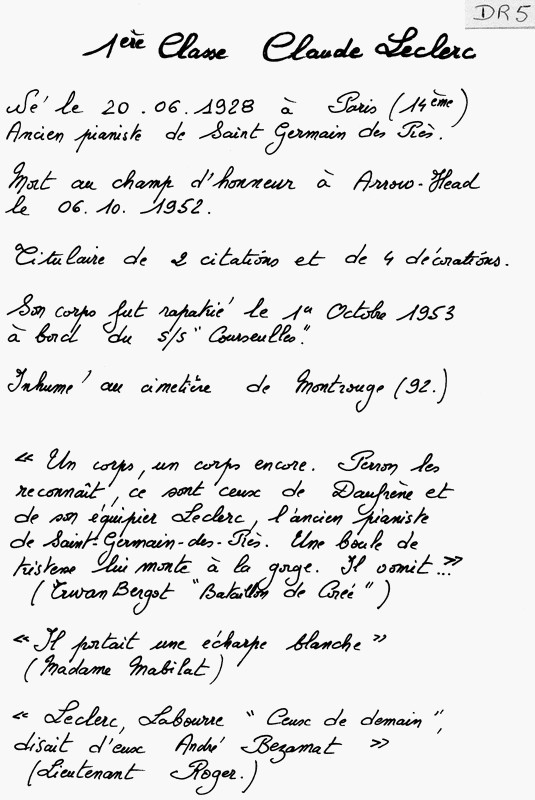 DR5
1ère Classe Claude Leclerc
Né le 20.06.1928 à Paris (14ème)
Ancien pianiste de Saint Germain des Près.
Mort au champ d'honneur à Arrow-Head
le 06.10.1952.
Titulaire de 2 citations et de 4 décorations.
Son corps fut rapatrié le 1er Octobre 1953
à bord du s/s "Courseulles".
Inhumé au cimetière de Montrouge (92.)
« Un corps, un corps encore. Perron les
reconnaît, ce sont ceux de Daufrène et
de son équipier Leclerc, l'ancien pianiste
de Saint-Germain-des-Près. Une boule de
tristesse lui monte à la gorge. Il vomit...»
(Erwan Bergot "Bataillon de Corée")
« Il portait une écharpe blanche »
(Madame Mabilat)
« Leclerc, Labourre "Ceux de demain",
disait d'eux André Bezamat »
(Lieutenant Roger.)